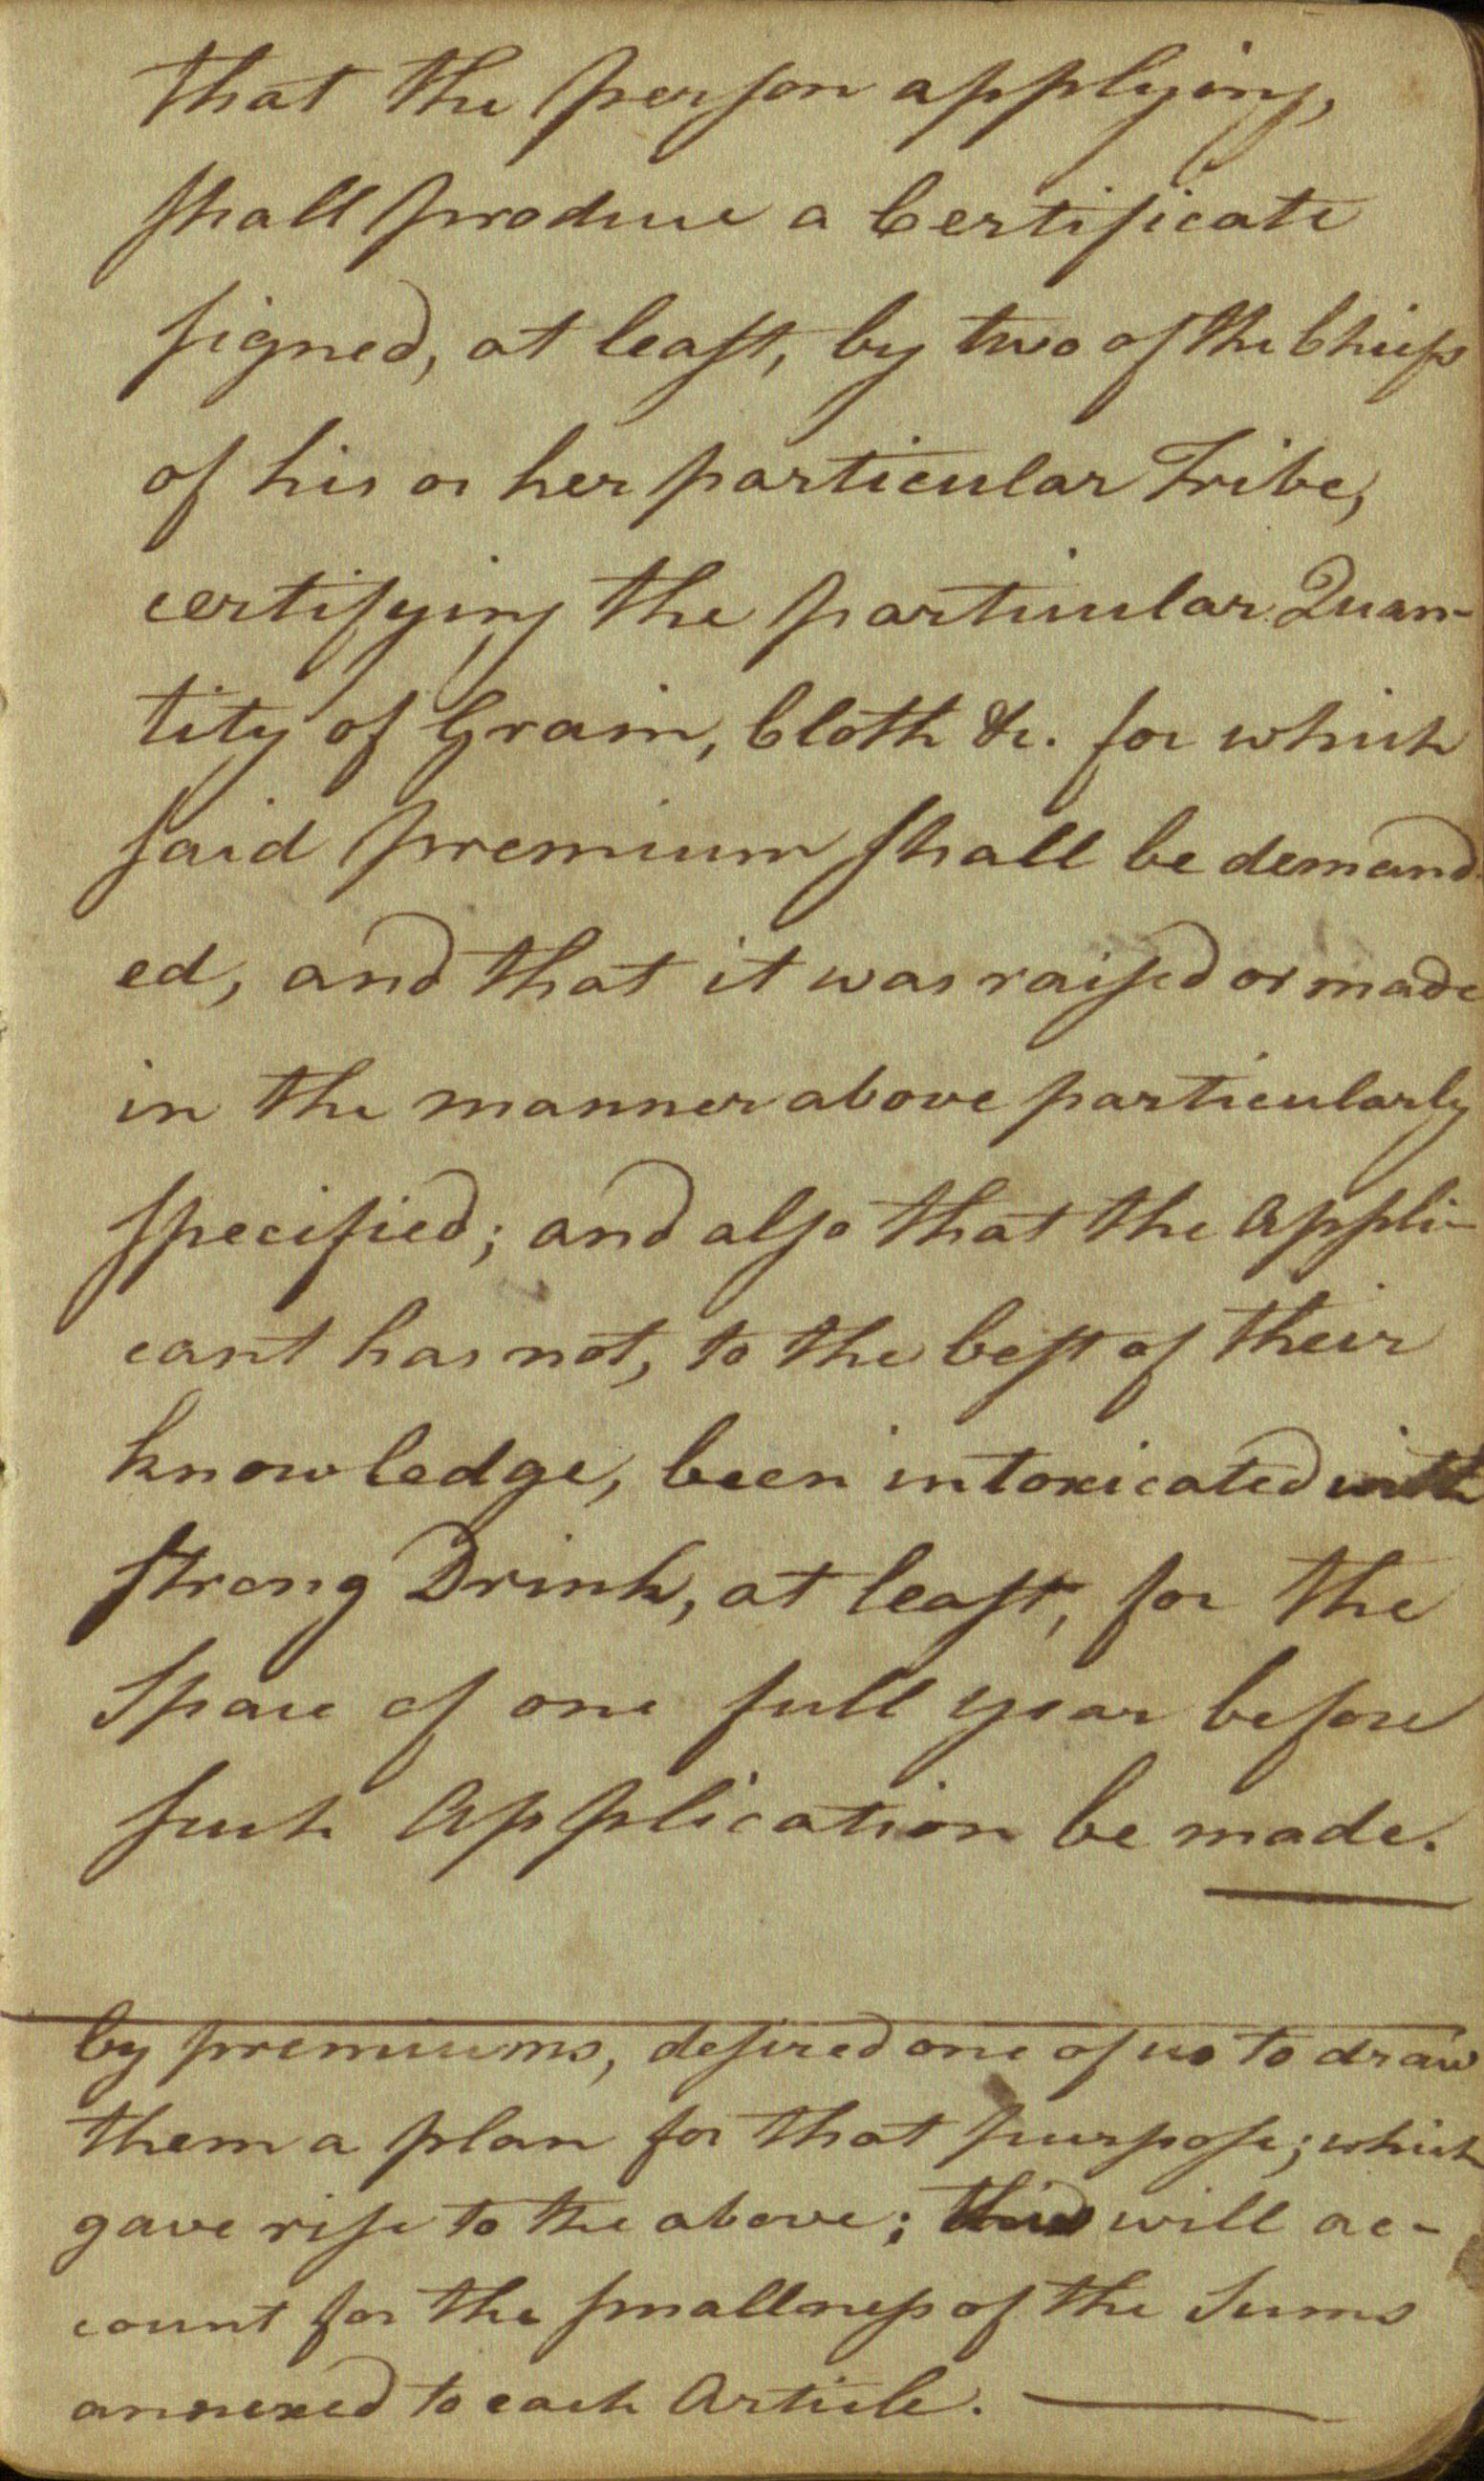 that the person applying,
shall produce a Certificate
signed, at least, by two of the Chiefs
of his or her particular Tribe,
certifying the particular Quan-
tity of Grain, Cloth &c. for which
said premium shall be demand-
ed, and that it was raised or made
in the manner above particularly
specified; and also that the Appli-
cant has not, to the best of their
knowledge, been intoxicated with
strong Drink, at least, for the
Space of one full year before
such Application be made.
by premiums, desired one of us to draw
them a plan for that purpose; which
gave rise to the above; this will ac-
count for the smallness of the Sums
annexed to each Article.